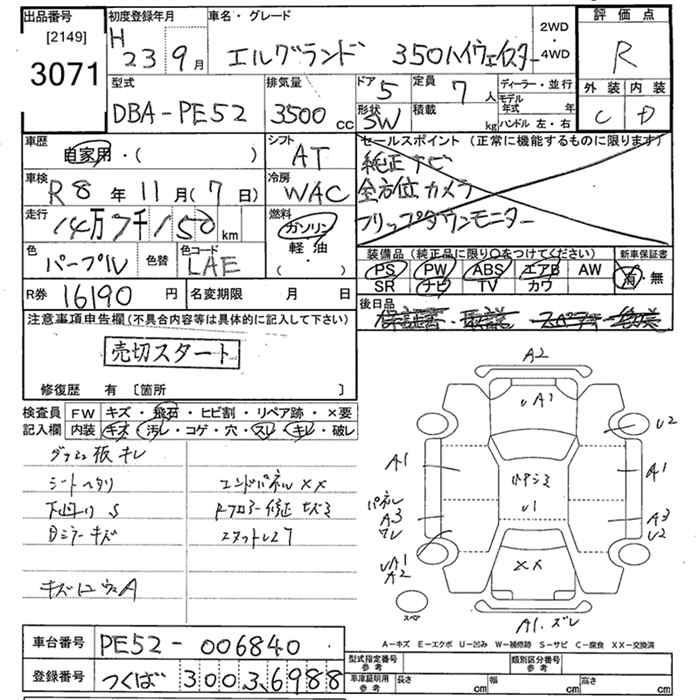 出品番号
[2149]
3071
初度登録年月
H 23 9月
車名・グレード
エルグランド 350ハイウェイスター
2WD
・
4WD
評価点
R
外装 内装
C D
型式
DBA-PE52
排気量
3500 CC
ドア 5
形状 SW
定員 7人
積載 kg
ディーラー・並行
モデル年式 年
ハンドル 左・右
車歴
自家用・( )
シフト
AT
セールスポイント(正常に機能するものに限ります)
純正ナビ
全方位カメラ
フリップダウンモニター
車検
R8年11月(7日)
冷房
WAC
走行
14万7千150km
燃料
ガソリン
軽油
( ・ )
色
パープル
色替
色コード
LAE
装備品(純正品に限り○をつけてください)
PS PW ABS エアB AW
SR ナビ TV カワ
新車保証書
有・無
R券 16190円
名変期限 月 日
後日品
注意事項申告欄(不具合内容等は具体的に記入して下さい)
売切スタート
修復歴 有〔箇所 〕
検査員記入欄
FW キズ・飛石・ヒビ割・リペア跡・×要
内装 キズ・汚レ・コゲ・穴・スレ・キレ・破レ
シートヘタリ
下廻リ S
キズ
エンドパネル XX
A2
UA1
U2
A1
A1
U1
パネル
A3
A3
U2
UA1
A2
XX
A1. ズレ
スペア
A-キズ E-エクボ U-凹み W-補修跡 S-サビ C-腐食 XX-交換済
車台番号 PE52-006840
登録番号 つくば 300 ま 6988
型式指定番号
参考
類別区分番号
車庫証明用
参考
長さ cm
幅 cm
高さ cm